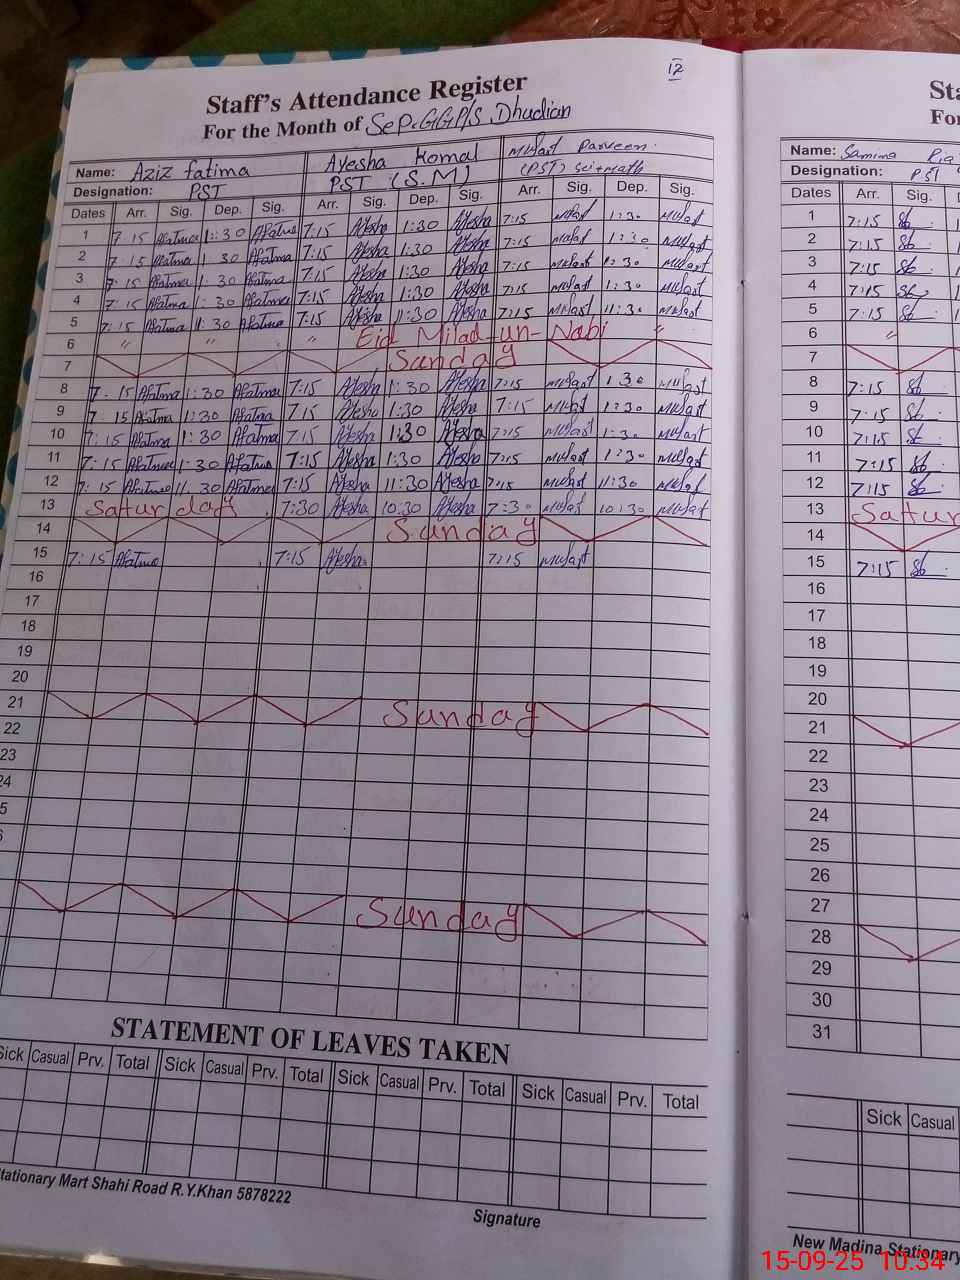 12
Staff's Attendance Register
For the Month of Sep. GGP/S Dhudian
Name: Aziz fatima Ayesha Komal Musart Parveen
Designation: PST PST (S.M) (PST) sci+math
Dates Arr. Sig. Dep. Sig. Arr. Sig. Dep. Sig. Arr. Sig. Dep. Sig.
1 7:15 Afatma 1:30 Afatma 7:15 Ayesha 1:30 Ayesha 7:15 Musart 1:30 Musart
2 7:15 Afatma 1:30 Afatma 7:15 Ayesha 1:30 Ayesha 7:15 Musart 1:30 Musart
3 7:15 Afatma 1:30 Afatma 7:15 Ayesha 1:30 Ayesha 7:15 Musart 1:30 Musart
4 7:15 Afatma 1:30 Afatma 7:15 Ayesha 1:30 Ayesha 7:15 Musart 1:30 Musart
5 7:15 Afatma 11:30 Afatma 7:15 Ayesha 11:30 Ayesha 7:15 Musart 11:30 Musart
6 " " " Eid Milad-un-Nabi "
7 Sunday
8 7:15 Afatma 1:30 Afatma 7:15 Ayesha 1:30 Ayesha 7:15 Musart 1:30 Musart
9 7:15 Afatma 1:30 Afatma 7:15 Ayesha 1:30 Ayesha 7:15 Musart 1:30 Musart
10 7:15 Afatma 1:30 Afatma 7:15 Ayesha 1:30 Ayesha 7:15 Musart 1:30 Musart
11 7:15 Afatma 1:30 Afatma 7:15 Ayesha 1:30 Ayesha 7:15 Musart 1:30 Musart
12 7:15 Afatma 11:30 Afatma 7:15 Ayesha 11:30 Ayesha 7:15 Musart 11:30 Musart
13 Satur day 7:30 Ayesha 10:30 Ayesha 7:30 Musart 10:30 Musart
14 Sunday
15 7:15 Afatma 7:15 Ayesha 7:15 Musart
16
17
18
19
20
21 Sunday
22
23
24
5
Sunday
STATEMENT OF LEAVES TAKEN
Sick Casual Prv. Total Sick Casual Prv. Total Sick Casual Prv. Total Sick Casual Prv. Total
Stationary Mart Shahi Road R.Y.Khan 5878222
Signature
Sta
For
Name: Samina Ria
Designation: PST
Dates Arr. Sig. D
1 7:15 Sb
2 7:15 Sb
3 7:15 Sb
4 7:15 Sb
5 7:15 Sb
6 "
7
8 7:15 Sb
9 7:15 Sb
10 7:15 Sb
11 7:15 Sb
12 7:15 Sb
13 Satur
14
15 7:15 Sb
16
17
18
19
20
21
22
23
24
25
26
27
28
29
30
31
Sick Casual
New Madina Stationary
15-09-25 10:34